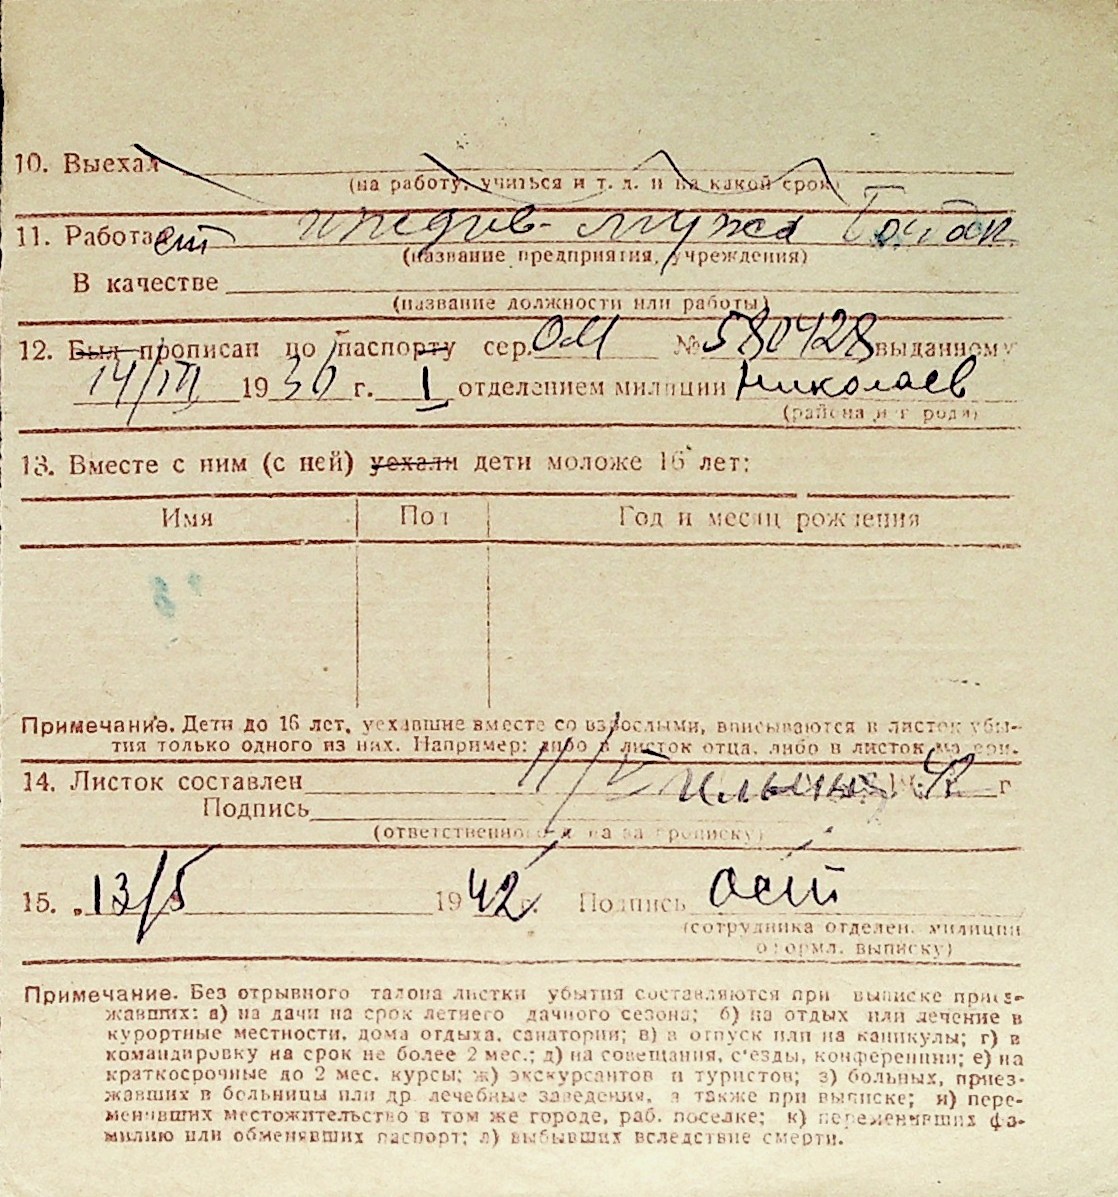 10. Выехал
(на работу, учиться и т. д. и на какой срок)
11. Работает иждив. мужа
(название предприятия, учреждения)
В качестве
(название должности или работы)
12. Был прописан по паспорту сер. ОМ № 580428 выданному
14/III 1930 г. I отделением милиции Николаев
(района и города)
13. Вместе с ним (с ней) уехали дети моложе 16 лет:
Имя Пол Год и месяц рождения
Примечание. Дети до 16 лет, уехавшие вместе со взрослыми, вписываются в листок убы-
тия только одного из них. Например: либо в листок отца, либо в листок матери.
14. Листок составлен 11/V 42 г
Подпись
(ответственного лица за прописку)
15. 13/5 1942 г. Подпись
(сотрудника отделен. милиции
оформл. выписку)
Примечание. Без отрывного талона листки убытия составляются при выписке приез-
жавших: а) на дачи на срок летнего дачного сезона; б) на отдых или лечение в
курортные местности, дома отдыха, санатории; в) в отпуск или на каникулы; г) в
командировку на срок не более 2 мес.; д) на совещания, с'езды, конференции; е) на
краткосрочные до 2 мес. курсы; ж) экскурсантов и туристов; з) больных, приез-
жавших в больницы или др. лечебные заведения, а также при выписке; и) пере-
менивших местожительство в том же городе, раб. поселке; к) переменивших фа-
милию или обменявших паспорт; л) выбывших вследствие смерти.